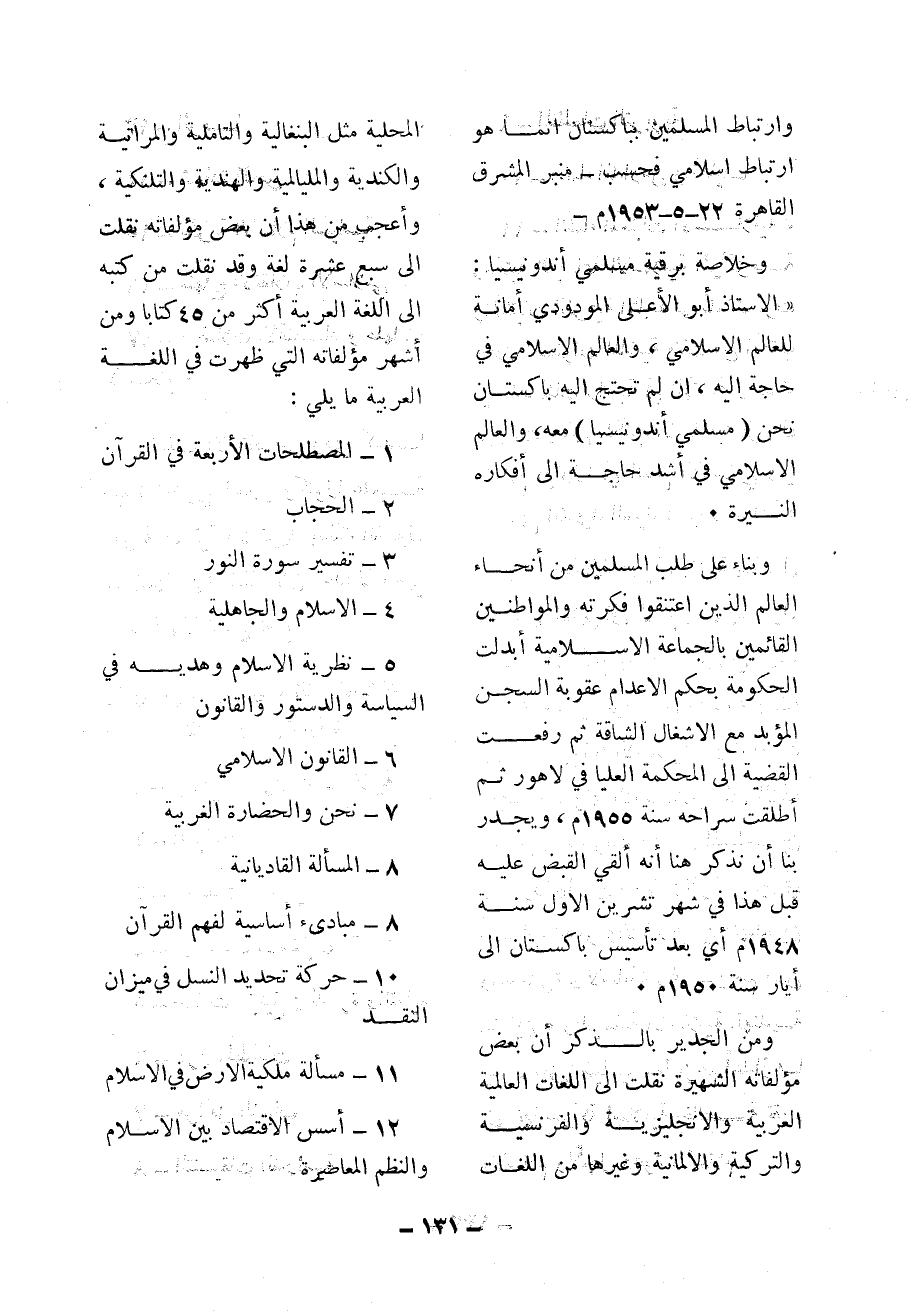 وارتباط المسلمين بباكستان انما هو
ارتباط اسلامي فحسب ـ منبر المشرق
القاهرة ٢٢–٥–١٩٥٣م –
وخلاصة برقية مسلمي أندونيسيا :
« الاستاذ أبو الأعلى المودودي أمانة
للعالم الاسلامي ، والعالم الاسلامي في
حاجة اليه ، ان لم تحتج اليه باكستان
نحن ( مسلمي أندونيسيا ) معه، والعالم
الاسلامي في أشد حاجة الى أفكاره
النيرة ٠
وبناء على طلب المسلمين من أنحاء
العالم الذين اعتنقوا فكرته والمواطنين
القائمين بالجماعة الاسلامية أبدلت
الحكومة بحكم الاعدام عقوبة السجن
المؤبد مع الاشغال الشاقة ثم رفعت
القضية الى المحكمة العليا في لاهور ثم
أطلقت سراحه سنة ١٩٥٥م ، ويجدر
بنا أن نذكر هنا أنه ألقي القبض عليه
قبل هذا في شهر تشرين الاول سنة
١٩٤٨م أي بعد تأسيس باكستان الى
أيار سنة ١٩٥٠م ٠
ومن الجدير بالذكر أن بعض
مؤلفاته الشهيرة نقلت الى اللغات العالمية
العربية والانجليزية والفرنسية
والتركية والالمانية وغيرها من اللغات
المحلية مثل البنغالية والتاملية والمراتية
والكندية والمليالمية والهندية والتلنكية ،
وأعجب من هذا أن بعض مؤلفاته نقلت
الى سبع عشرة لغة وقد نقلت من كتبه
الى اللغة العربية أكثر من ٤٥ كتابا ومن
أشهر مؤلفاته التي ظهرت في اللغة
العربية ما يلي :
١ ـ المصطلحات الأربعة في القرآن
٢ ـ الحجاب
٣ ـ تفسير سورة النور
٤ ـ الاسلام والجاهلية
٥ ـ نظرية الاسلام وهديه في
السياسة والدستور والقانون
٦ ـ القانون الاسلامي
٧ ـ نحن والحضارة الغربية
٨ ـ المسألة القاديانية
٨ ـ مبادىء أساسية لفهم القرآن
١٠ ـ حركة تحديد النسل في ميزان
النقد
١١ ـ مسألة ملكية الارض في الاسلام
١٢ ـ أسس الاقتصاد بين الاسلام
والنظم المعاصرة
ـ ١٣١ ـ